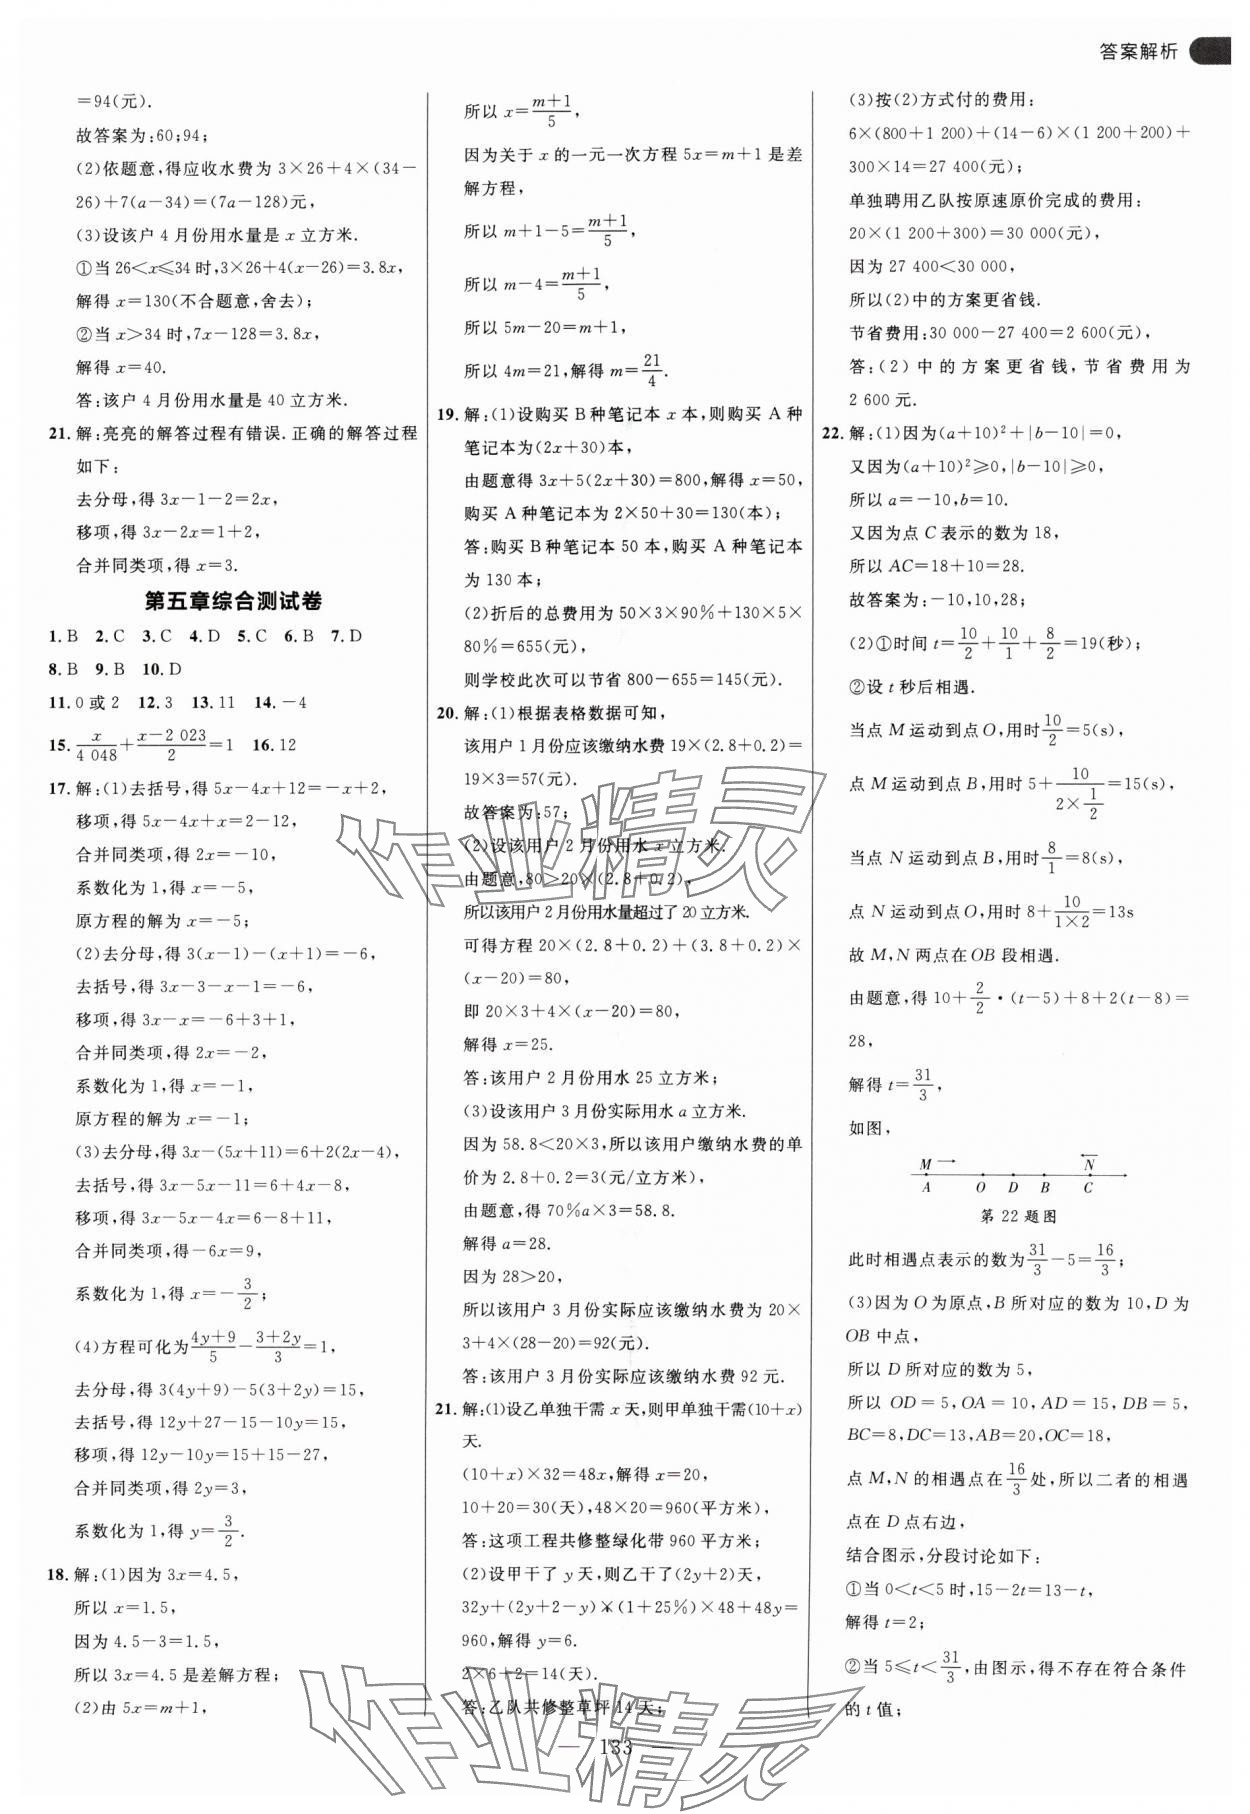 答案解析
=94(元).
故答案为:60;94;
(2)依题意,得应收水费为 3×26+4×(34-
26)+7(a-34)=(7a-128)元,
(3)设该户 4 月份用水量是 x 立方米.
①当 26<x≤34 时,3×26+4(x-26)=3.8x,
解得 x=130(不合题意,舍去);
②当 x>34 时,7x-128=3.8x,
解得 x=40.
答:该户 4 月份用水量是 40 立方米.
21. 解:亮亮的解答过程有错误.正确的解答过程
如下:
去分母,得 3x-1-2=2x,
移项,得 3x-2x=1+2,
合并同类项,得 x=3.
第五章综合测试卷
1. B 2. C 3. C 4. D 5. C 6. B 7. D
8. B 9. B 10. D
11. 0 或 2 12. 3 13. 11 14. -4
15. x/4 048+(x-2 023)/2=1 16. 12
17. 解:(1)去括号,得 5x-4x+12=-x+2,
移项,得 5x-4x+x=2-12,
合并同类项,得 2x=-10,
系数化为 1,得 x=-5,
原方程的解为 x=-5;
(2)去分母,得 3(x-1)-(x+1)=-6,
去括号,得 3x-3-x-1=-6,
移项,得 3x-x=-6+3+1,
合并同类项,得 2x=-2,
系数化为 1,得 x=-1,
原方程的解为 x=-1;
(3)去分母,得 3x-(5x+11)=6+2(2x-4),
去括号,得 3x-5x-11=6+4x-8,
移项,得 3x-5x-4x=6-8+11,
合并同类项,得-6x=9,
系数化为 1,得 x=-3/2;
(4)方程可化为(4y+9)/5-(3+2y)/3=1,
去分母,得 3(4y+9)-5(3+2y)=15,
去括号,得 12y+27-15-10y=15,
移项,得 12y-10y=15+15-27,
合并同类项,得 2y=3,
系数化为 1,得 y=3/2.
18. 解:(1)因为 3x=4.5,
所以 x=1.5,
因为 4.5-3=1.5,
所以 3x=4.5 是差解方程;
(2)由 5x=m+1,
所以 x=(m+1)/5,
因为关于 x 的一元一次方程 5x=m+1 是差
解方程,
所以 m+1-5=(m+1)/5,
所以 m-4=(m+1)/5,
所以 5m-20=m+1,
所以 4m=21,解得 m=21/4.
19. 解:(1)设购买 B 种笔记本 x 本,则购买 A 种
笔记本为(2x+30)本,
由题意得 3x+5(2x+30)=800,解得 x=50,
购买 A 种笔记本为 2×50+30=130(本);
答:购买 B 种笔记本 50 本,购买 A 种笔记本
为 130 本;
(2)折后的总费用为 50×3×90%+130×5×
80%=655(元),
则学校此次可以节省 800-655=145(元).
20. 解:(1)根据表格数据可知,
该用户 1 月份应该缴纳水费 19×(2.8+0.2)=
19×3=57(元).
故答案为:57;
(2)设该用户 2 月份用水 x 立方米.
由题意,80>20×(2.8+0.2),
所以该用户 2 月份用水量超过了 20 立方米.
可得方程 20×(2.8+0.2)+(3.8+0.2)×
(x-20)=80,
即 20×3+4×(x-20)=80,
解得 x=25.
答:该用户 2 月份用水 25 立方米;
(3)设该用户 3 月份实际用水 a 立方米.
因为 58.8<20×3,所以该用户缴纳水费的单
价为 2.8+0.2=3(元/立方米),
由题意,得 70%a×3=58.8.
解得 a=28.
因为 28>20,
所以该用户 3 月份实际应该缴纳水费为 20×
3+4×(28-20)=92(元).
答:该用户 3 月份实际应该缴纳水费 92 元.
21. 解:(1)设乙单独干需 x 天,则甲单独干需(10+x)
天.
(10+x)×32=48x,解得 x=20,
10+20=30(天),48×20=960(平方米),
答:这项工程共修整绿化带 960 平方米;
(2)设甲干了 y 天,则乙干了(2y+2)天,
32y+(2y+2-y)×(1+25%)×48+48y=
960,解得 y=6.
2×6+2=14(天).
答:乙队共修整草坪 14 天;
(3)按(2)方式付的费用:
6×(800+1 200)+(14-6)×(1 200+200)+
300×14=27 400(元);
单独聘用乙队按原速原价完成的费用:
20×(1 200+300)=30 000(元),
因为 27 400<30 000,
所以(2)中的方案更省钱.
节省费用:30 000-27 400=2 600(元),
答:(2)中的方案更省钱,节省费用为
2 600 元.
22. 解:(1)因为(a+10)²+|b-10|=0,
又因为(a+10)²≥0,|b-10|≥0,
所以 a=-10,b=10.
又因为点 C 表示的数为 18,
所以 AC=18+10=28.
故答案为:-10,10,28;
(2)①时间 t=10/2+10/1+8/2=19(秒);
②设 t 秒后相遇.
当点 M 运动到点 O,用时10/2=5(s),
点 M 运动到点 B,用时 5+10/(2×1/2)=15(s),
当点 N 运动到点 B,用时8/1=8(s),
点 N 运动到点 O,用时 8+10/(1×2)=13s
故 M,N 两点在 OB 段相遇.
由题意,得 10+2/2·(t-5)+8+2(t-8)=
28,
解得 t=31/3,
如图,
M N
A O D B C
第 22 题图
此时相遇点表示的数为31/3-5=16/3;
(3)因为 O 为原点,B 所对应的数为 10,D 为
OB 中点,
所以 D 所对应的数为 5,
所以 OD=5,OA=10,AD=15,DB=5,
BC=8,DC=13,AB=20,OC=18,
点 M,N 的相遇点在16/3处,所以二者的相遇
点在 D 点右边,
结合图示,分段讨论如下:
①当 0<t<5 时,15-2t=13-t,
解得 t=2;
②当 5≤t<31/3,由图示,得不存在符合条件
的 t 值;
— 133 —
作业精灵
作业精灵